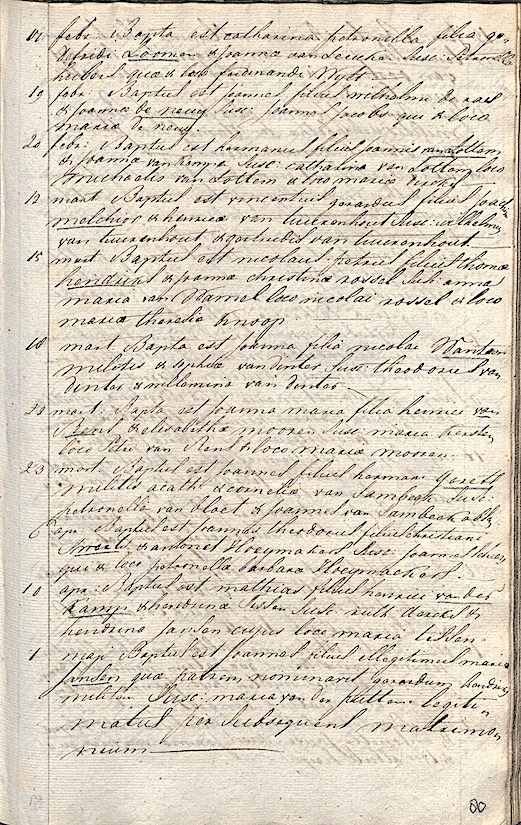 17 febr: Bapta est catharina petronella filia go,
defridi Looman & Joanna van Susc: Petronella
quæ & loco ferdinandi Nijts
19 febr: Baptus est Joannes filius wilhelmi de raes
& Joannæ de neug Susc: Joannes Jacobs qui & loco
maria de neug.
20 febr: Baptus est hermanus filius Joannis van Lottem
& Joannæ van Susc: catharina van Lottem loco
michaelis van Lottem & loco mariæ
12 mart Baptus est vincentius gerardus filius Joachim
melchior & henricæ van tuerenhout Susc: wilhelmus
van tuerenhout & gertrudis van tuerenhout.
15 mart Baptus est nicolaus petrus filius thomæ
hendriks & Joannæ christinæ rossel Susc: anna
maria van Hamel loco nicolai rossel & loco
mariæ theresiæ knoop
18 mart Bapta est Joanna filia nicolai
militis & sophiæ van dinter Susc: theodorus van
dinter & willemina van dinter
20 mart: Bapta est Joanna maria filia henrici van
Rens & elisabethæ mooren Susc: maria kersten
loco Petri van Rens & loco mariæ mooren.
23 mart. Baptus est Joannes filius hermani gerets
militis acath: & corneliæ van Sambeeck Susc:
petronella van bloet & Joannes van Sambeeck
6 apr. Baptus est Joannes theodorus filius christiani
& antonet Hoeymakers Susc: Joannes
qui & loco petronellæ barbaræ Hoeymackers.
10 apr: Baptus est mathias filius henrici van der
Kamp & hendrinæ Susc: ruth &
hendrina Jansen cujus loco maria
1 maj: Baptus est Joannes filius illegitimus mariæ
Jansen quæ patrem nominavit gerardum
militem Susc: maria van den legiti,
matus per subsequens matrimo,
nium
80